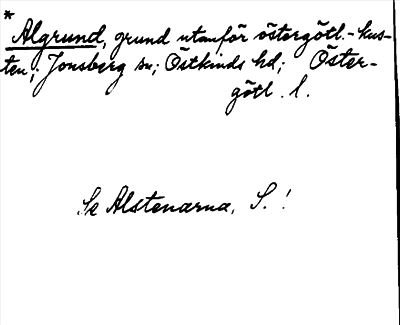 *
Algrund, grund utanför östergötl.-kus-
ten; Jonsberg sn; Östkinds hd; Öster-
götl. l.
Se Alstenarna, S.!